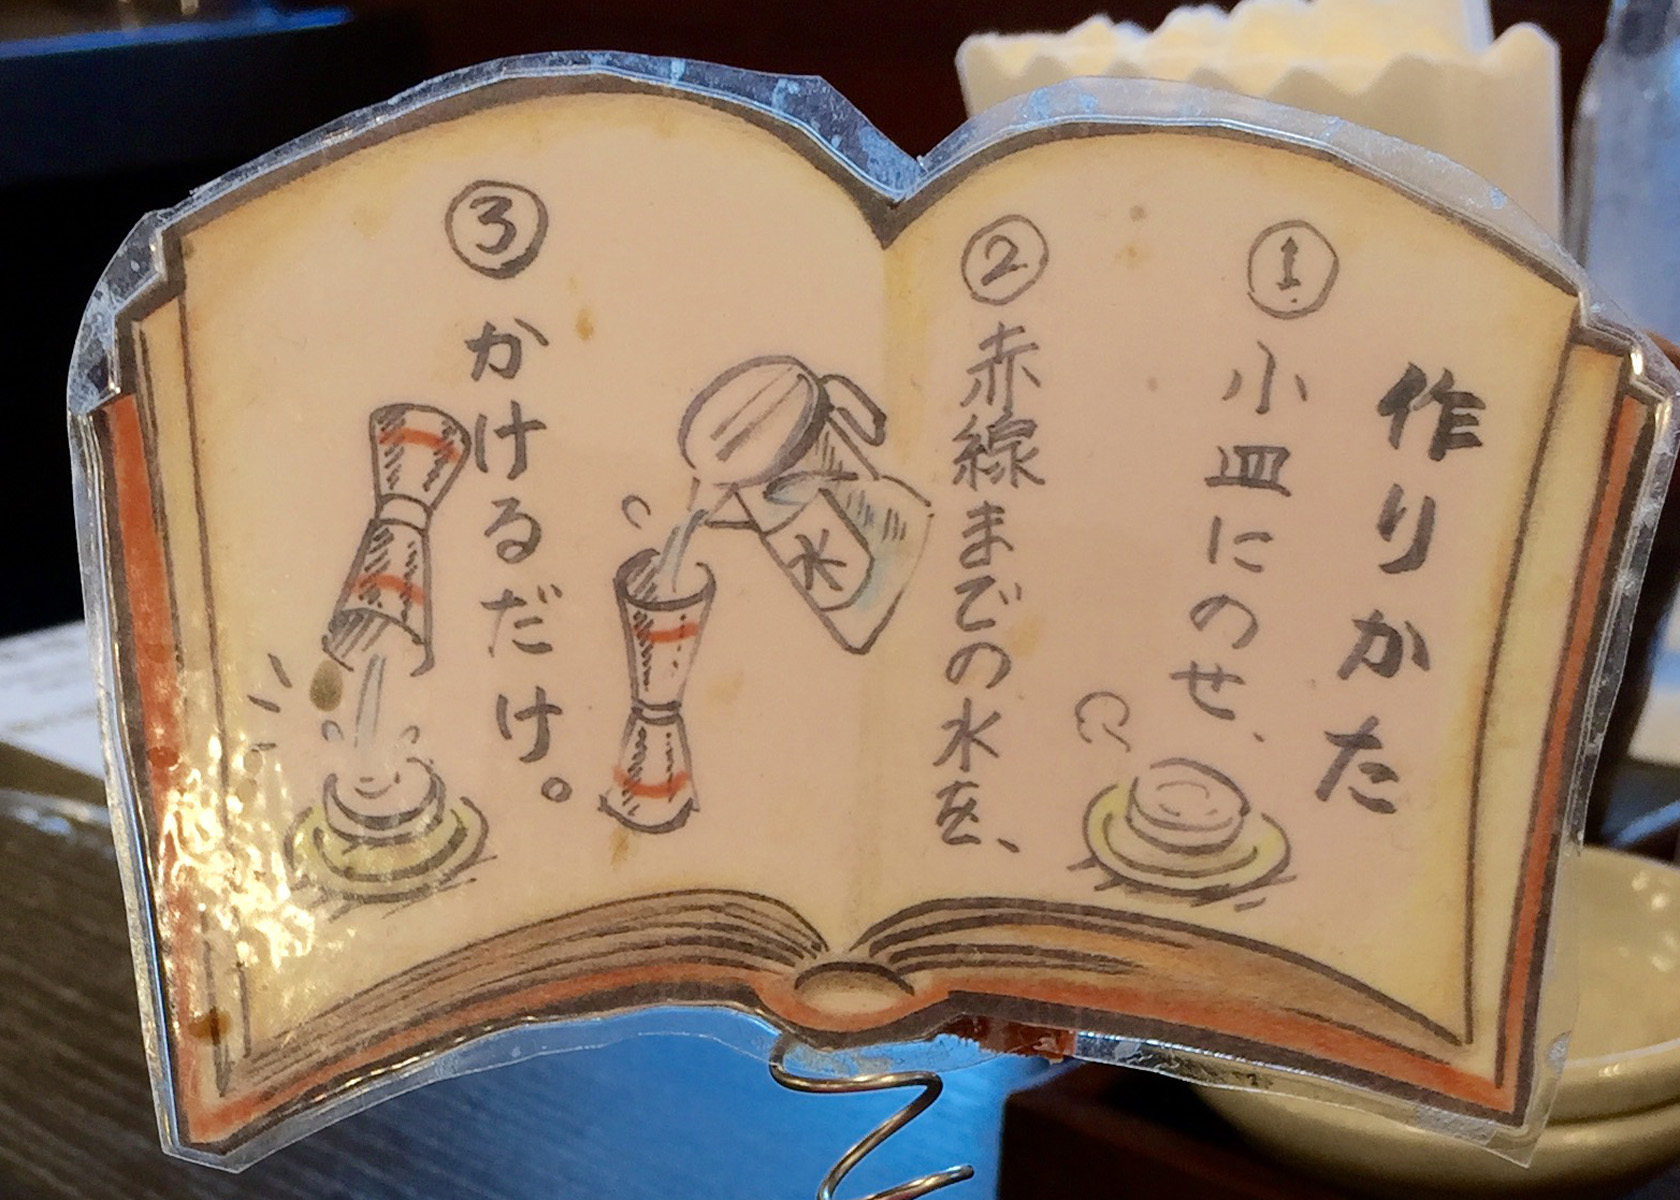 作りかた
①小皿にのせ、
②赤線までの水を、
水
③かけるだけ。